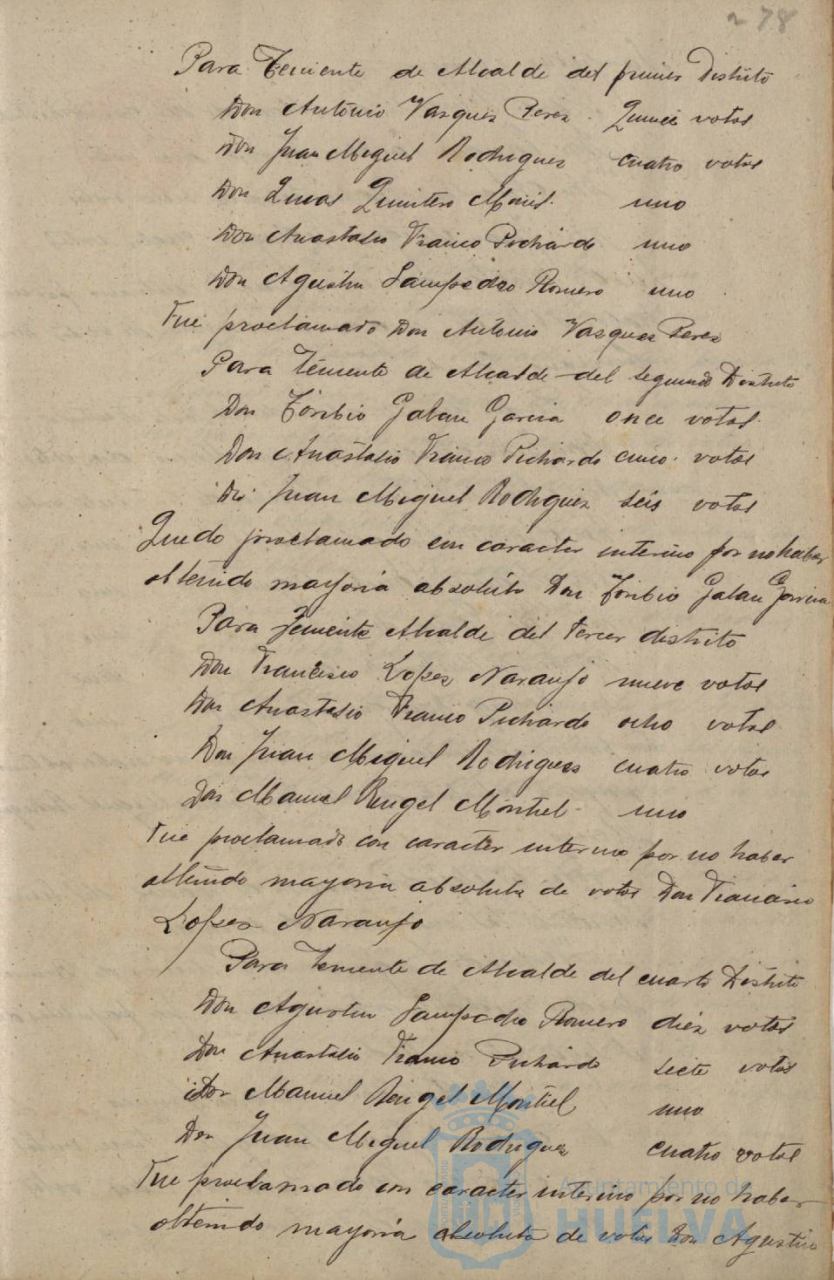 278
Para Teniente de Alcalde del primer Distrito
Don Antonio Vasquez Perez. Quince votos
Don Juan Miguel Rodriguez cuatro votos
Don Lucas Quintero uno
Don Anastasio Franco Pichardo uno
Don Agustin Sampedro Romero uno
Fue proclamado Don Antonio Vasquez Perez
Para Teniente de Alcalde del segundo Distrito
Don Toribio Galan Garcia once votos
Don Anastasio Franco Pichardo cinco votos
Juan Miguel Rodriguez seis votos
Quedo proclamado con caracter interino por no haber
obtenido mayoria absoluta Don Toribio Galan Garcia
Para Teniente Alcalde del tercer distrito
Don Francisco Lopez Naranjo nueve votos
Don Anastasio Franco Pichardo ocho votos
Don Juan Miguel Rodriguez cuatro votos
Don Manuel Rengel Montiel uno
Fue proclamado con caracter interino por no haber
obtenido mayoria absoluta de votos Don Francisco
Lopez Naranjo
Para Teniente de Alcalde del cuarto Distrito
Don Agustin Sampedro Romero diez votos
Don Anastasio Franco Pichardo siete votos
Don Manuel Rengel Montiel uno
Don Juan Miguel Rodriguez cuatro votos
Fue proclamado con caracter interino por no haber
obtenido mayoria absoluta de votos Don Agustin
Ayuntamiento de
HUELVA